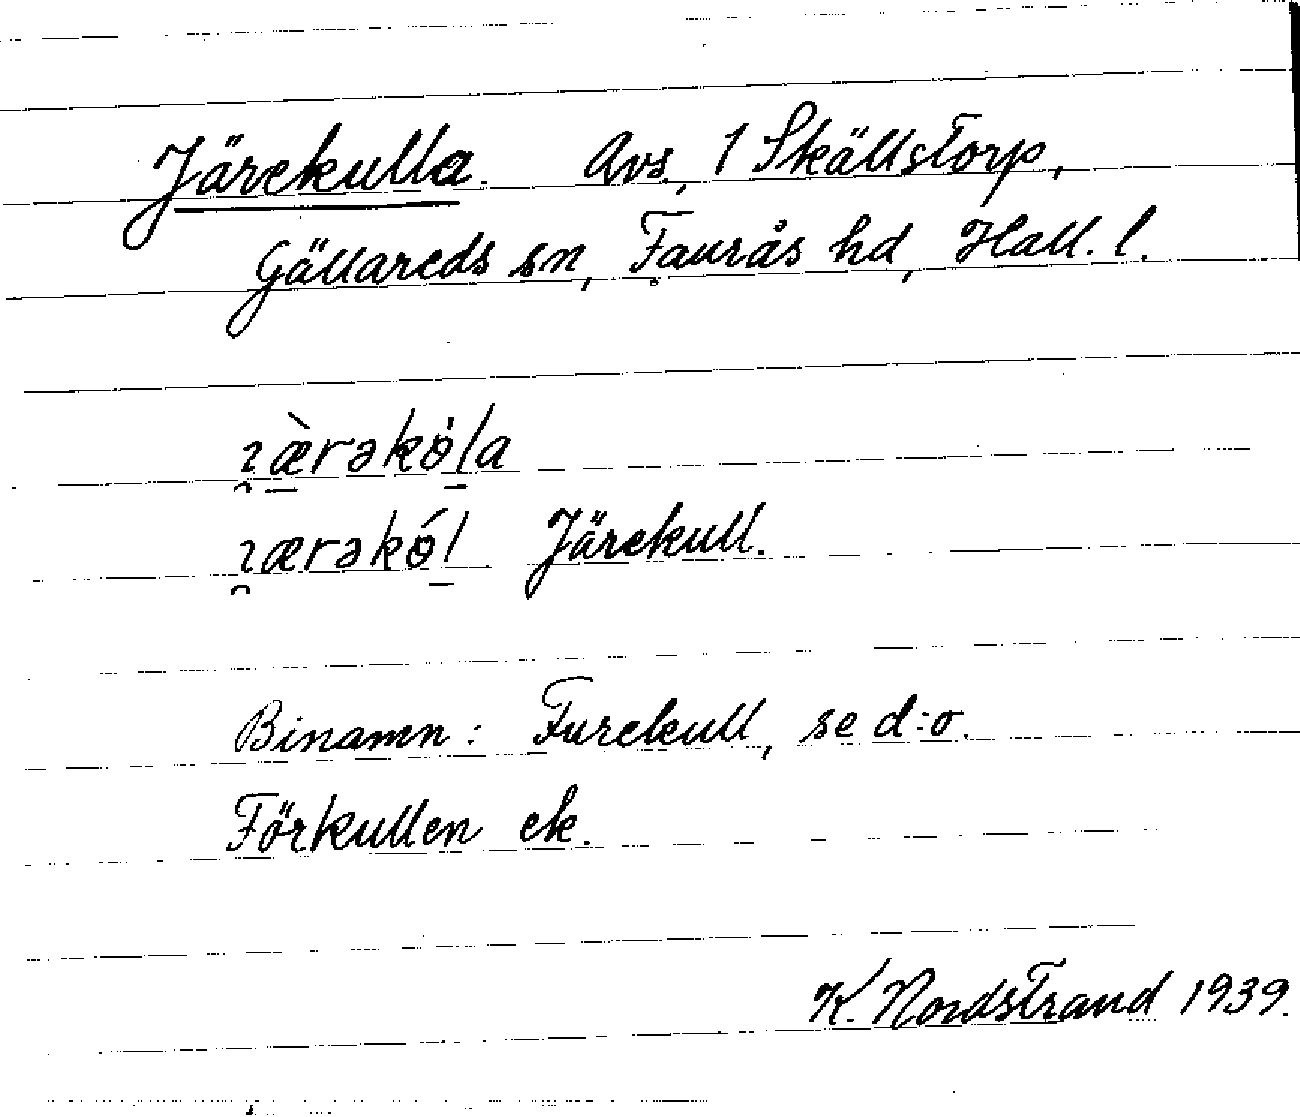 Järekulla. Avs, 1 Skällstorp,
Gällareds sn, Faurås hd, Hall. l.
Järekull.
Binamn: Furekull, se d:o.
Förkullen ek.
K. Nordstrand 1939.